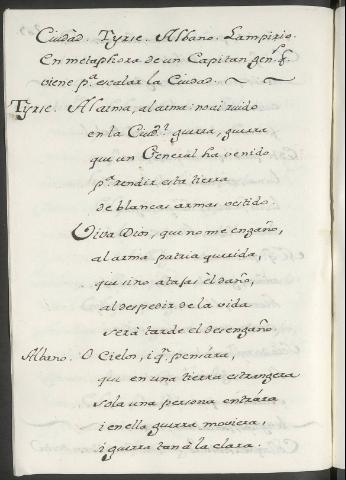 Ciudàd. Tyrse. Albano. Lampirio.
En metaphora de un Capitan genl. q.
viene pa. escalar la Ciudad.
Tyrse. Al arma, al arma: no ai ruido
en la Ciudd. guerra, guerra
que un General ha venido
pa. rendir esta tierra
de blancas armas vestido.
Viva Dios, que no me engaño,
al arma patria querida,
que sino atajas èl daño,
al despedir de la vida
serà tarde el desengaño.
Albano. O Cielos, i q. pensára,
que en una tierra estrangera
sola una persona entrára
i en ella guerra moviera,
i guerra tan à la clara.